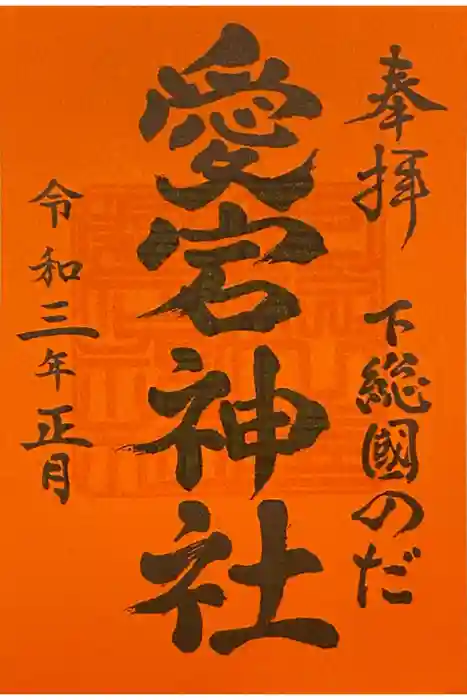 奉拝
下総國のだ
愛宕神社
令和三年正月